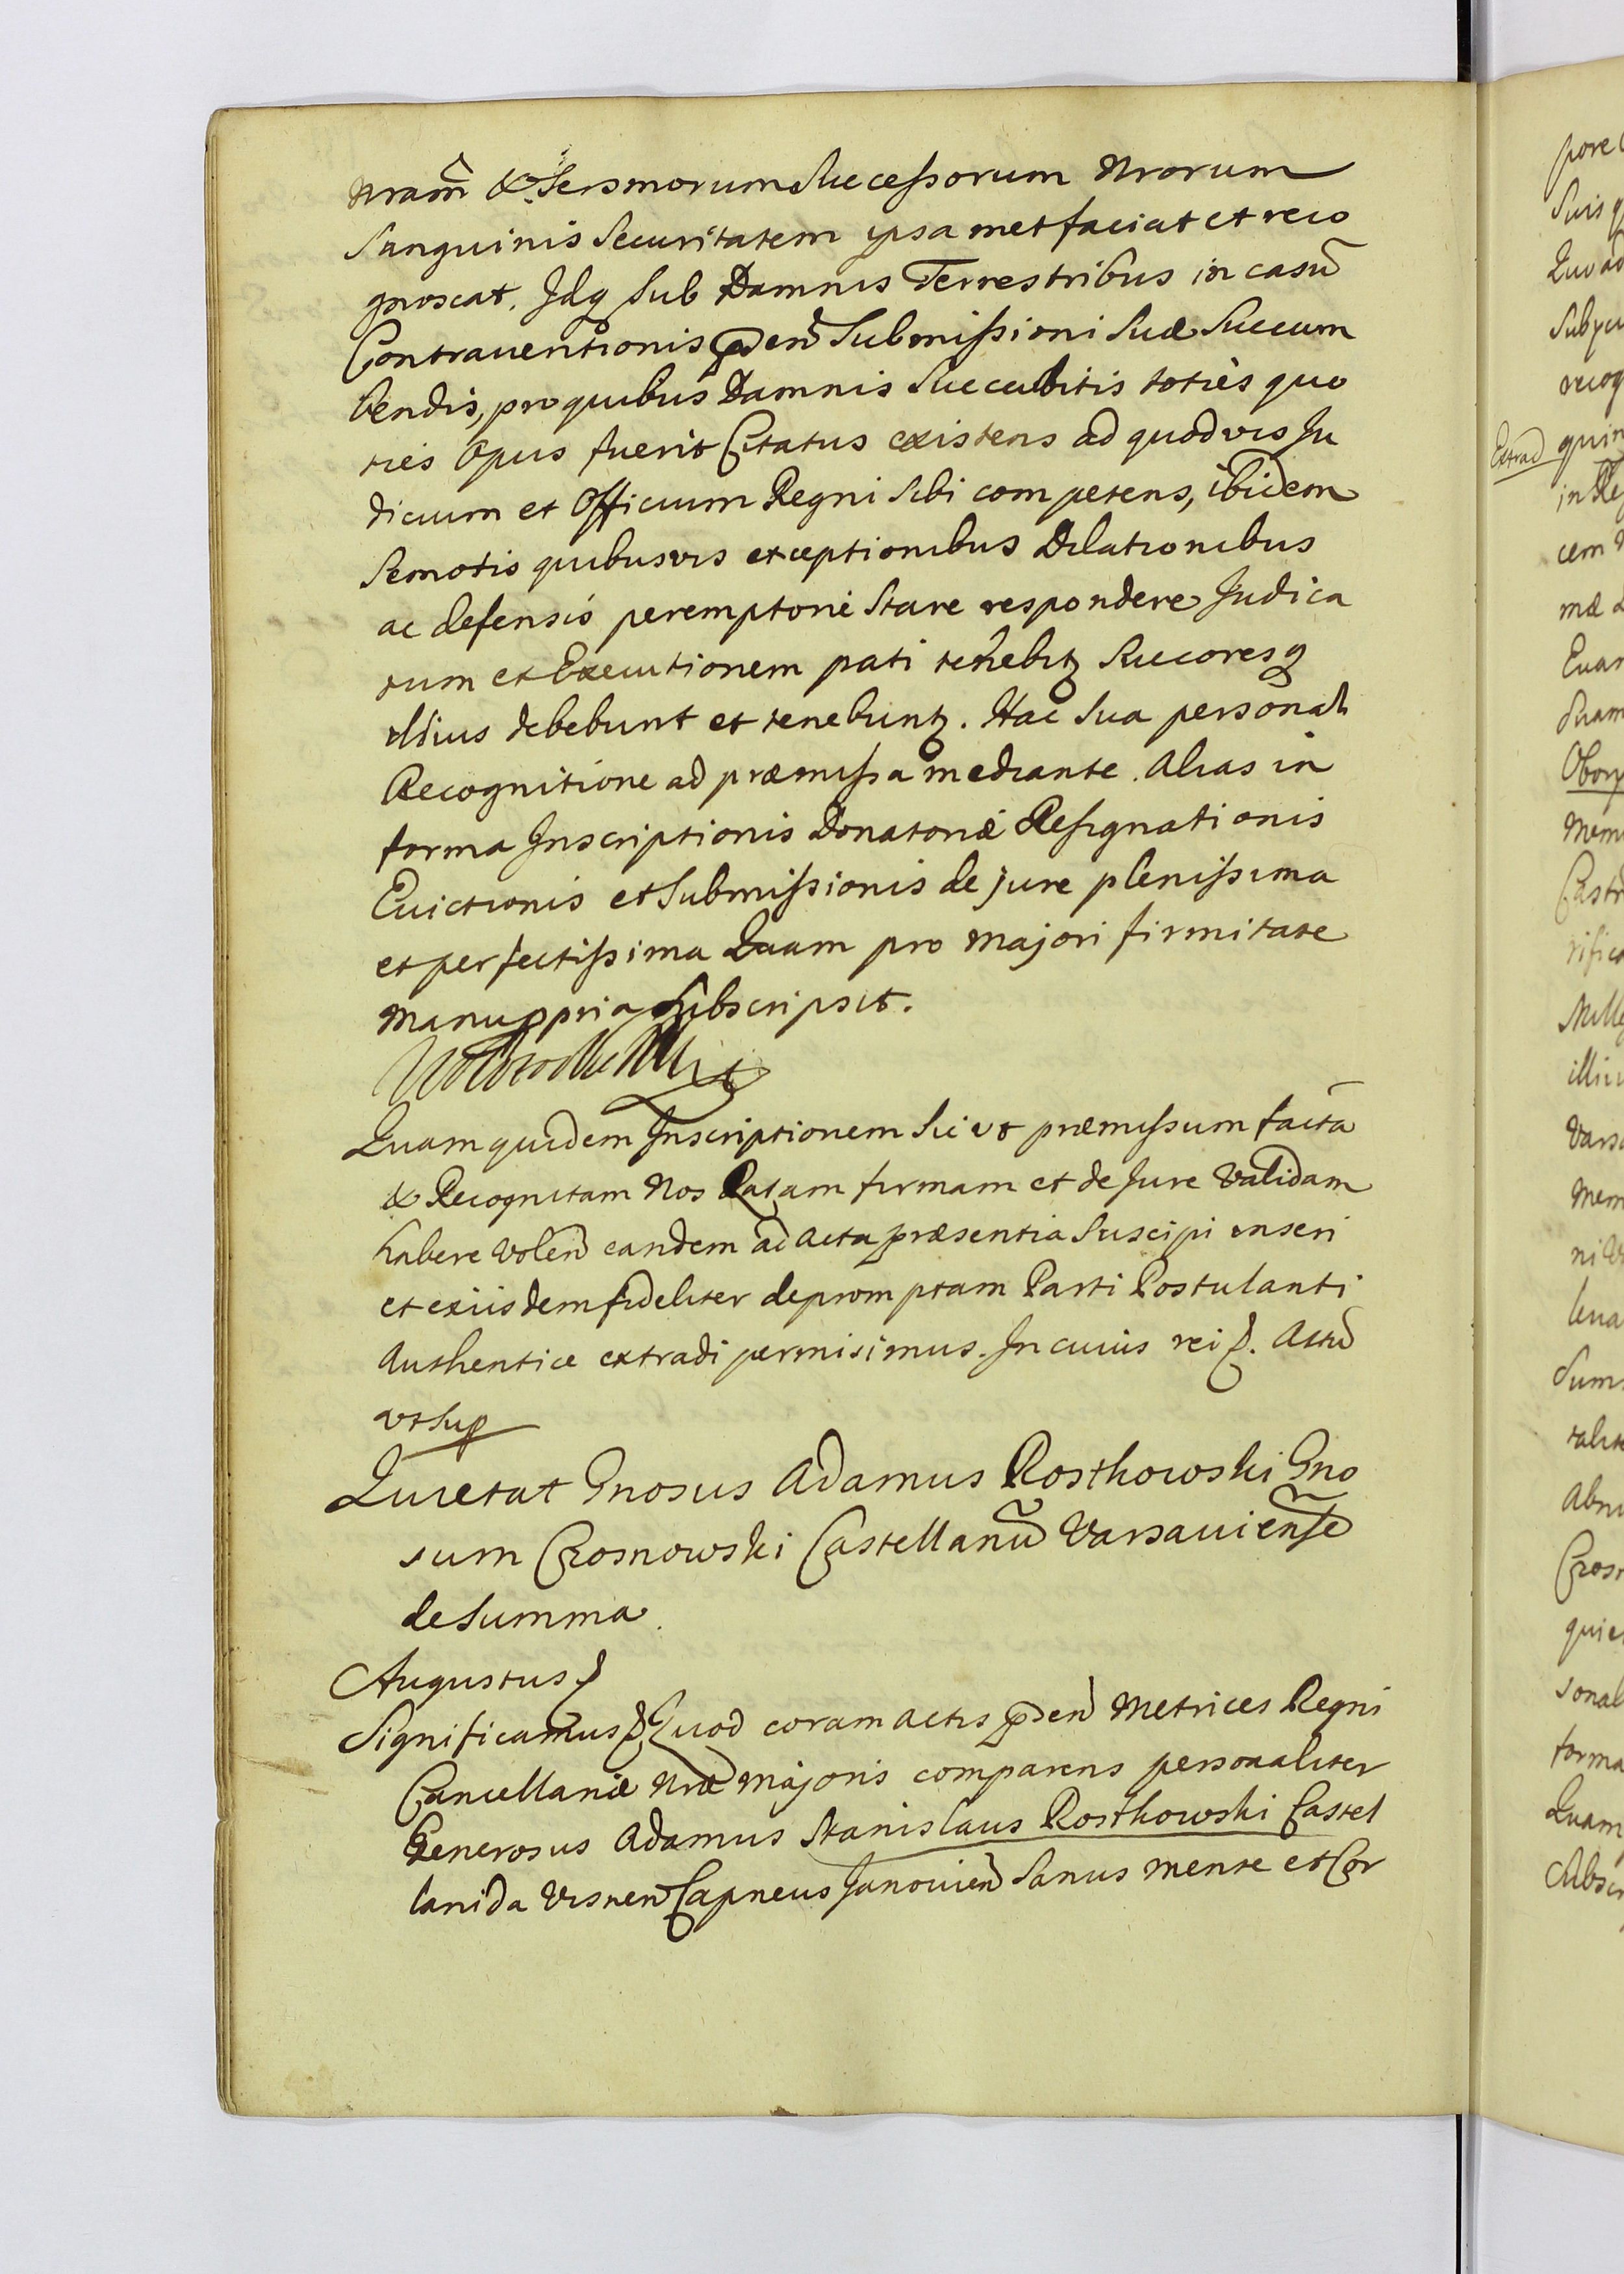 Nram̃ & Sersmorum Successorum Nrorum
Sanguinis Securitatem ipsa met faciat et reco
gnoscat. Idq Sub Damnis Terrestribus in casũ
Contrauentionis pñden Submissioni Suæ Succum
bendis, pro quibus Damnis Succubitis toties quo
ties Opus fuerit Citatus existens ad quodvis Ju
dicium et Officium Regni Sibi competens, ibidem
Semotis quibusvis exceptionibus Dilationibus
ac defensis peremptorie Stare respondere Judica
tum et Executionem pati tenebitz Succoresq
illius debebunt et tenebuntz. Hac Sua personali
Recognitione ad præmissa mediante. Alias in
forma Inscriptionis Donatoriæ Resignationis
Euictionis et Submissionis de jure plenissima
et perfectissima Quam pro majori firmitate
manu ppria Subscripsit.
Quam quidem Inscriptionem Sic vt præmissum factã
& Recognitam Nos Ratam firmam et de Jure Validam
habere Volen eandem ad Acta præsentia Suscipi inseri
et exiisdem fideliter depromptam Parti Postulanti
Authentice extradi permisimus. In cuius rei &. Actũ
vt Sup
Quietat Gnosus Adamus Rosthowski Gno
sum Crosnowski Castellanũ Varsauiense
de Summa.
Augustus &
Significamus & Quod coram Actis pñden Metrices Regni
Cancellariæ Nræ Majoris comparens personaliter
Generosus Adamus Stanislaus Rosthowski Castel
lanida Visnen Capneus Janouien Sanus mente et Cor
pore
Suis
Subjci
recog
Extrad
cem
mæ
Castr
illiu
Varsa
Mem
Sum
forma
Quam